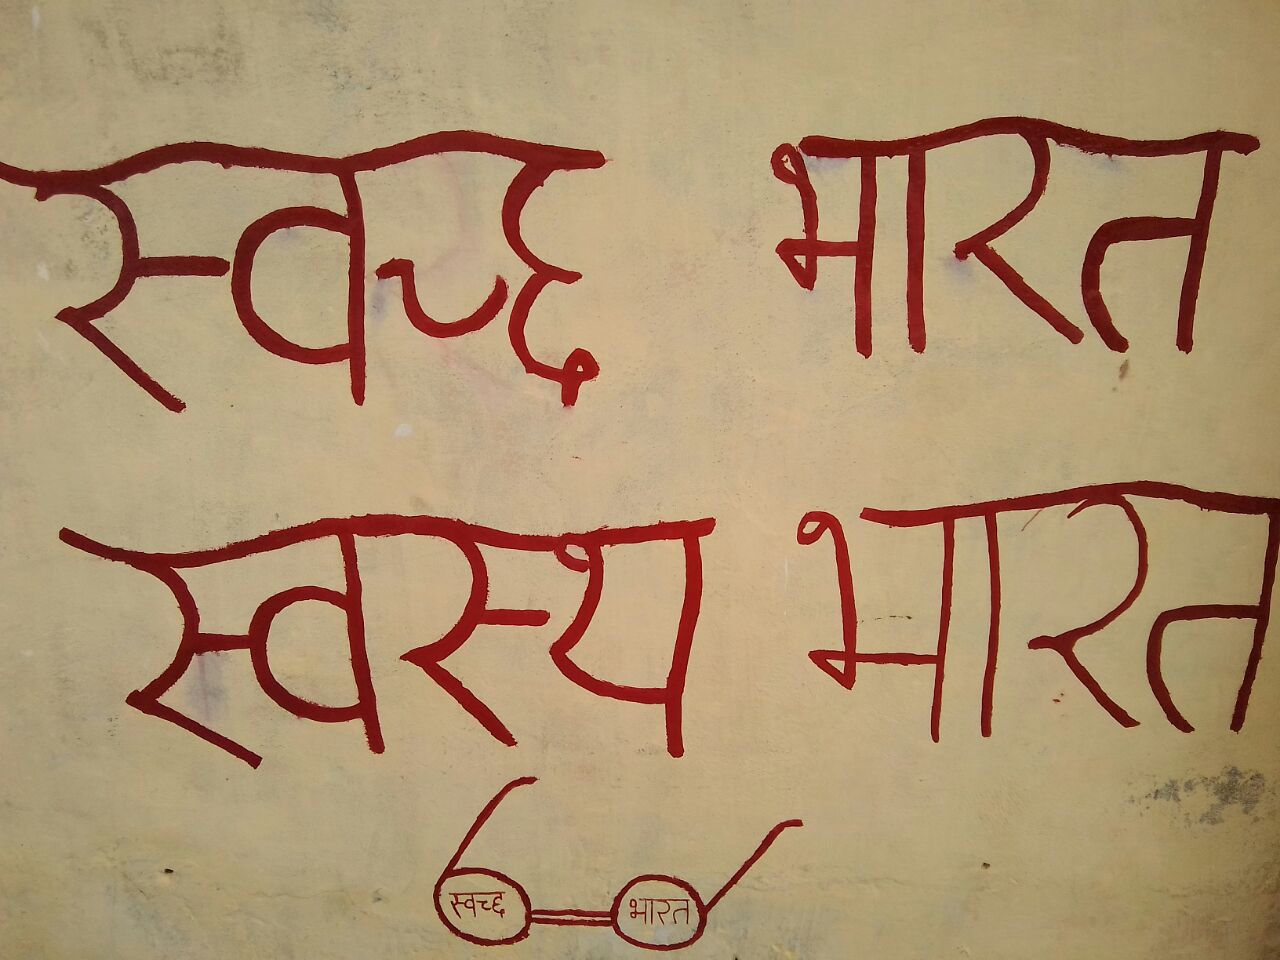 स्वच्छ भारत
स्वस्थ भारत
स्वच्छ भारत